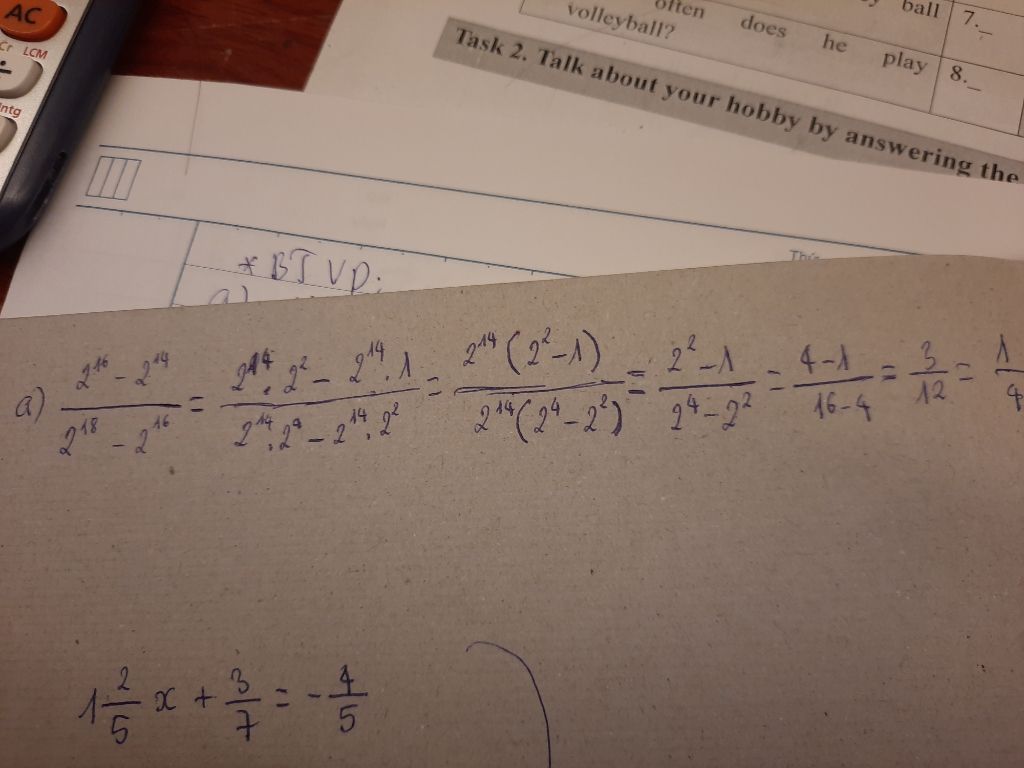 AC
Cr LCM
÷
Intg
ball 7._
often does he play 8._
volleyball?
Task 2. Talk about your hobby by answering the
* BT VD:
a)
a) (2^16 - 2^14)/(2^18 - 2^16) = (2^14 . 2^2 - 2^14 . 1)/(2^14 . 2^4 - 2^14 . 2^2) = (2^14 (2^2 - 1))/(2^14 (2^4 - 2^2)) = (2^2 - 1)/(2^4 - 2^2) = (4 - 1)/(16 - 4) = 3/12 = 1/4
1 2/5 x + 3/7 = - 4/5